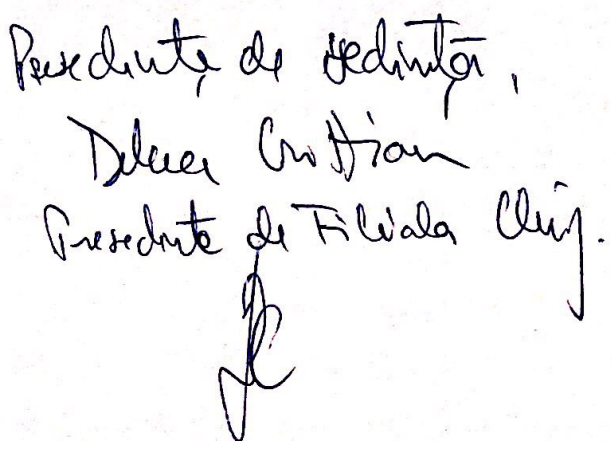 Președinte de ședință,
Cristian
Președinte de Filiala Cluj.